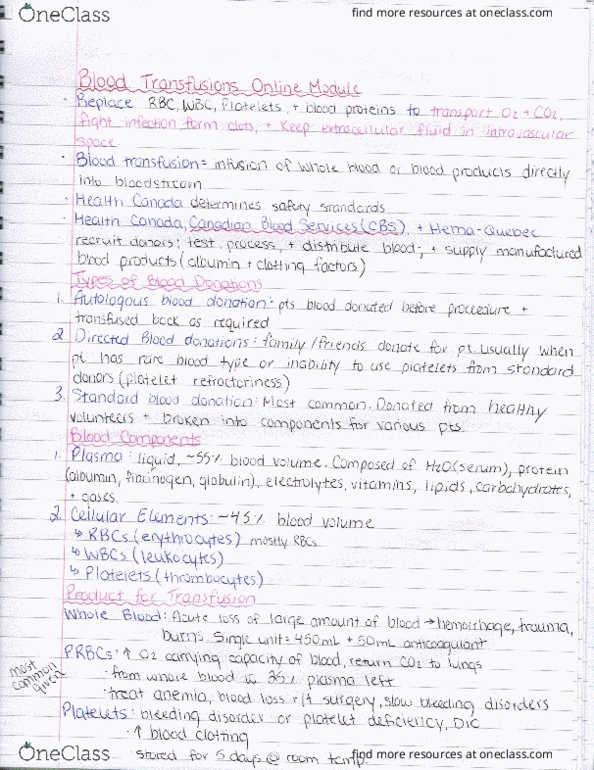 OneClass
find more resources at oneclass.com
Blood Transfusions Online Module
· Replace RBC, WBC, Platelets, + blood proteins to transport O2 + CO2,
fight infection, form clots, + keep extracellular fluid in intravascular
space
· Blood transfusion = infusion of whole blood or blood products directly
into bloodstream
· Health Canada determines safety standards
· Health Canada, Canadian Blood Services (CBS), + Hema-Quebec
recruit donors; test, process, + distribute blood; + supply manufactured
blood products (albumin + clotting factors)
Types of Blood Donations
1. Autologous blood donation: pts blood donated before procedure +
transfused back as required
2. Directed Blood donations: family/friends donate for pt. Usually when
pt has rare blood type or inability to use platelets from standard
donors (platelet refractoriness)
3. Standard blood donation: Most common. Donated from healthy
volunteers + broken into components for various pts.
Blood Components
1. Plasma: liquid, ~55% blood volume. Composed of H2O (serum), protein
(albumin, fibrinogen, globulin), electrolytes, vitamins, lipids, carbohydrates,
+ gases.
2. Cellular Elements: ~45% blood volume
↳ RBCs (erythrocytes) mostly RBCs
↳ WBCs (leukocytes)
↳ Platelets (thrombocytes)
Product for Transfusion
Whole Blood: Acute loss of large amount of blood → hemorrhage, trauma,
burns. Single unit = 450mL + 50mL anticoagulant
PRBCs: ↑ O2 carrying capacity of blood, return CO2 to lungs
most common given
· from whole blood 25% plasma left
· treat anemia, blood loss r/t surgery, slow bleeding disorders
Platelets: bleeding disorder or platelet deficiency, DIC
· ↑ blood clotting
· stored for 5 days @ room temp.
OneClass
find more resources at oneclass.com